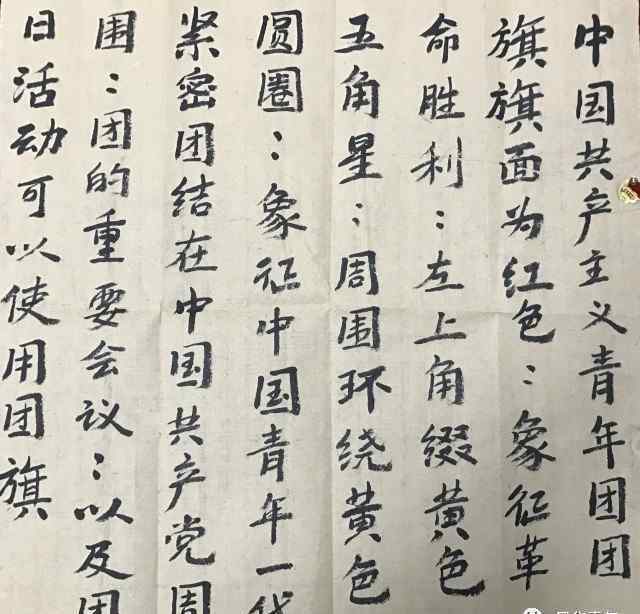 中国共产主义青年团团
旗旗面为红色：象征革
命胜利：左上角缀黄色
五角星：周围环绕黄色
圆圈：象征中国青年一代
紧密团结在中国共产党周
围：团的重要会议：以及团
日活动可以使用团旗